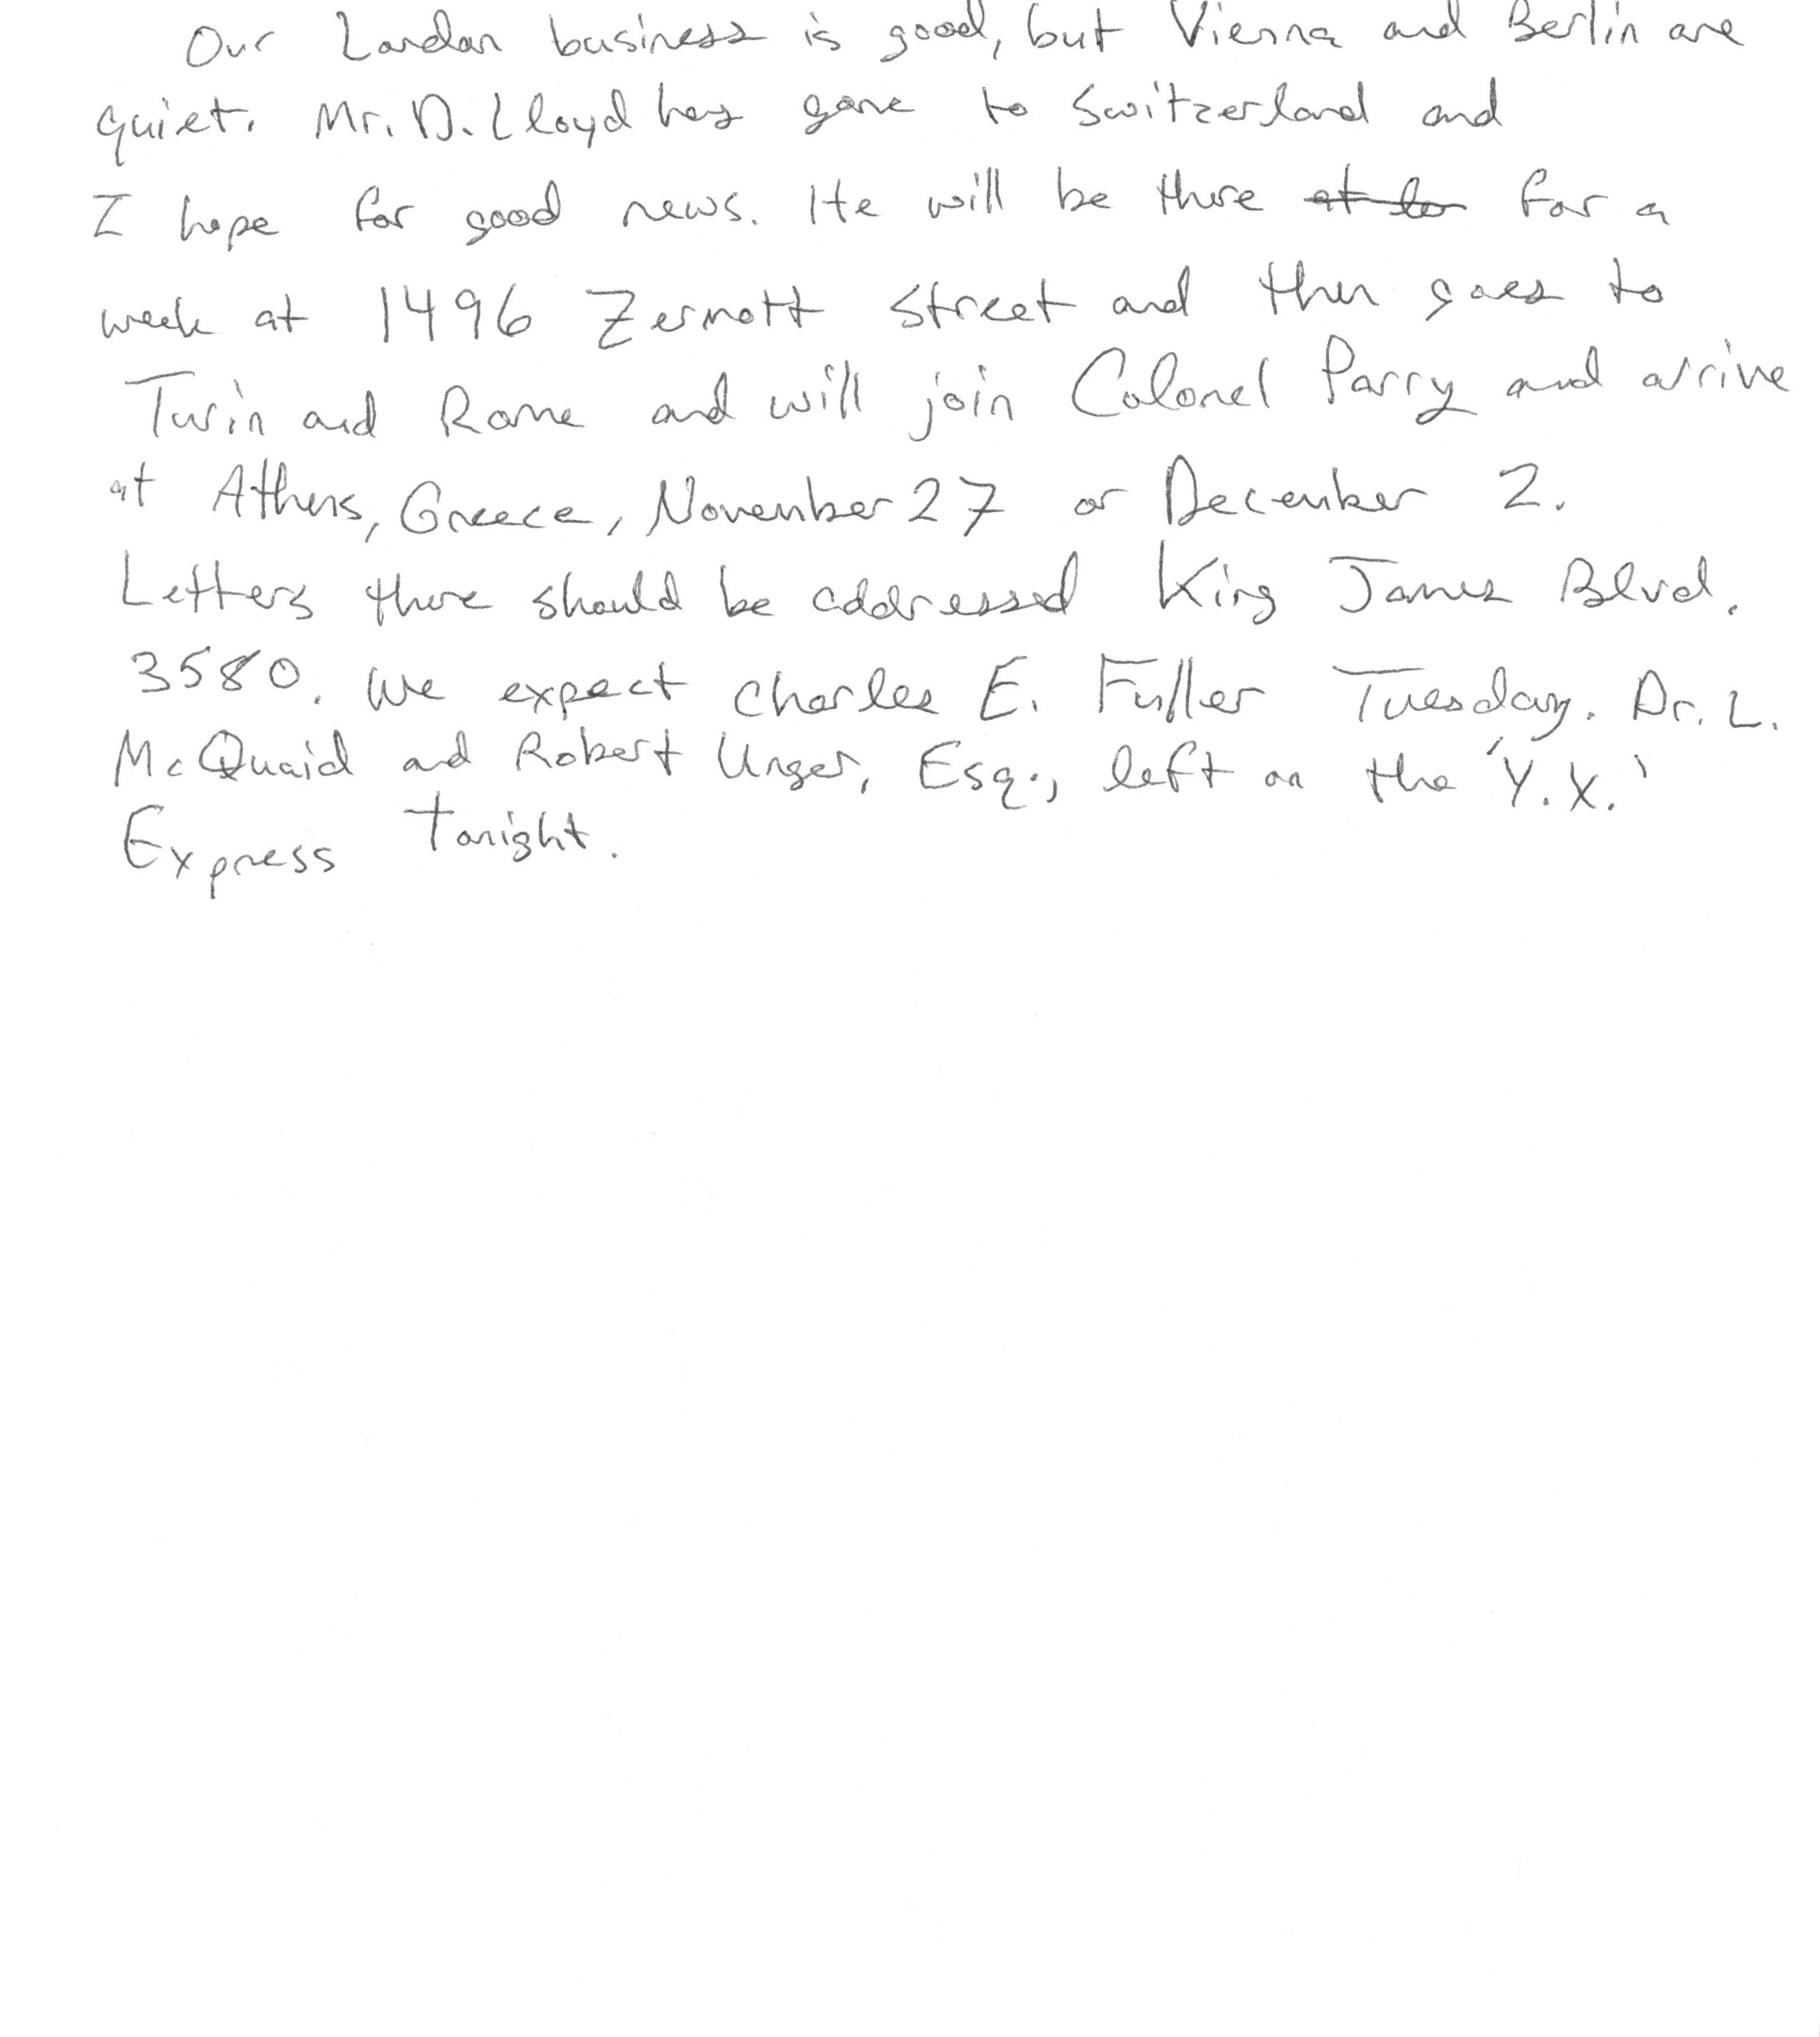 Our London business is good, but Vienna and Berlin are
quiet. Mr. D. Lloyd has gone to Switzerland and
I hope for good news. He will be there for a
week at 1496 Zermott Street and then goes to
Turin and Rome and will join Colonel Parry and arrive
at Athens, Greece, November 27 or December 2.
Letters there should be addressed King James Blvd.
3580. We expect Charles E. Fuller Tuesday. Dr. L.
McQuaid and Robert Unger, Esq., left on the 'Y.X.'
Express tonight.